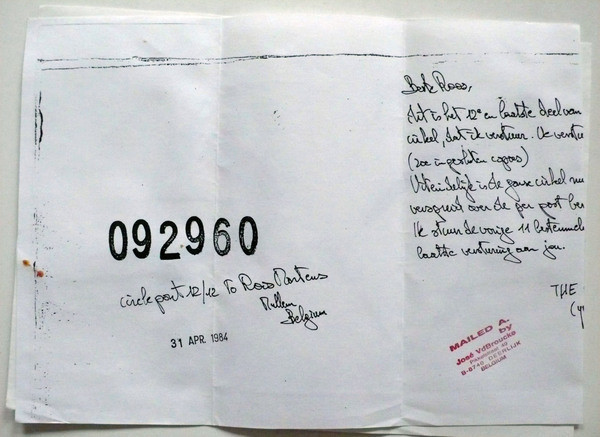 Beste Roos,
dit is het 12e en laatste deel van
cirkel, dat ik verstuur. Ik verstu
(zoe ingesloten copies)
Uiteindelijk is de ganse cirkel nu
verspreid over de per post ber
Ik stuur de vorige 11 bestemmel
laatste versturing aan jou.
THE
092960
circle part 12/12 To Roos Martens
Mullem
Belgium
31 APR. 1984
MAILED A.
by
José VdBroucke
B-8740 DEERLIJK
BELGIUM